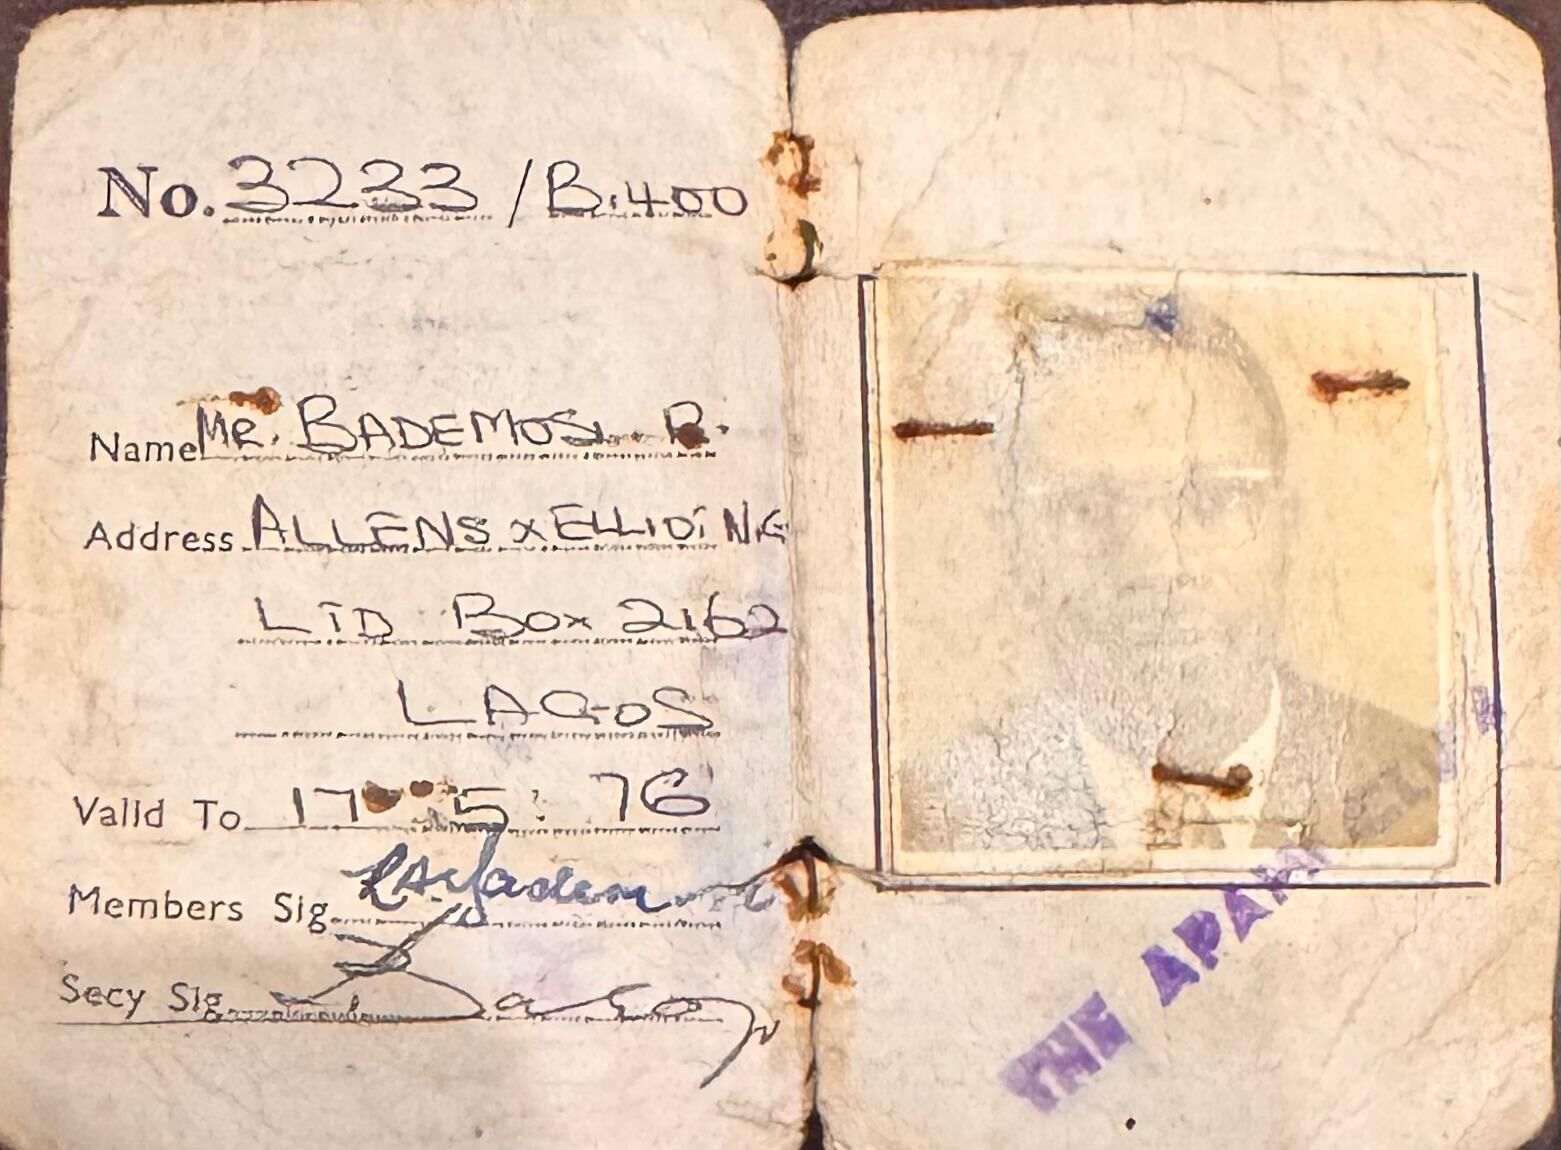 No. 3233 / B.400
Name Mr. BADEMOSI R.
Address ALLENS x ELLIDING
LTD BOX 2162
LAGOS
Valid To 17 5: 76
Members Sig.
Secy Sig.
THE APAPA